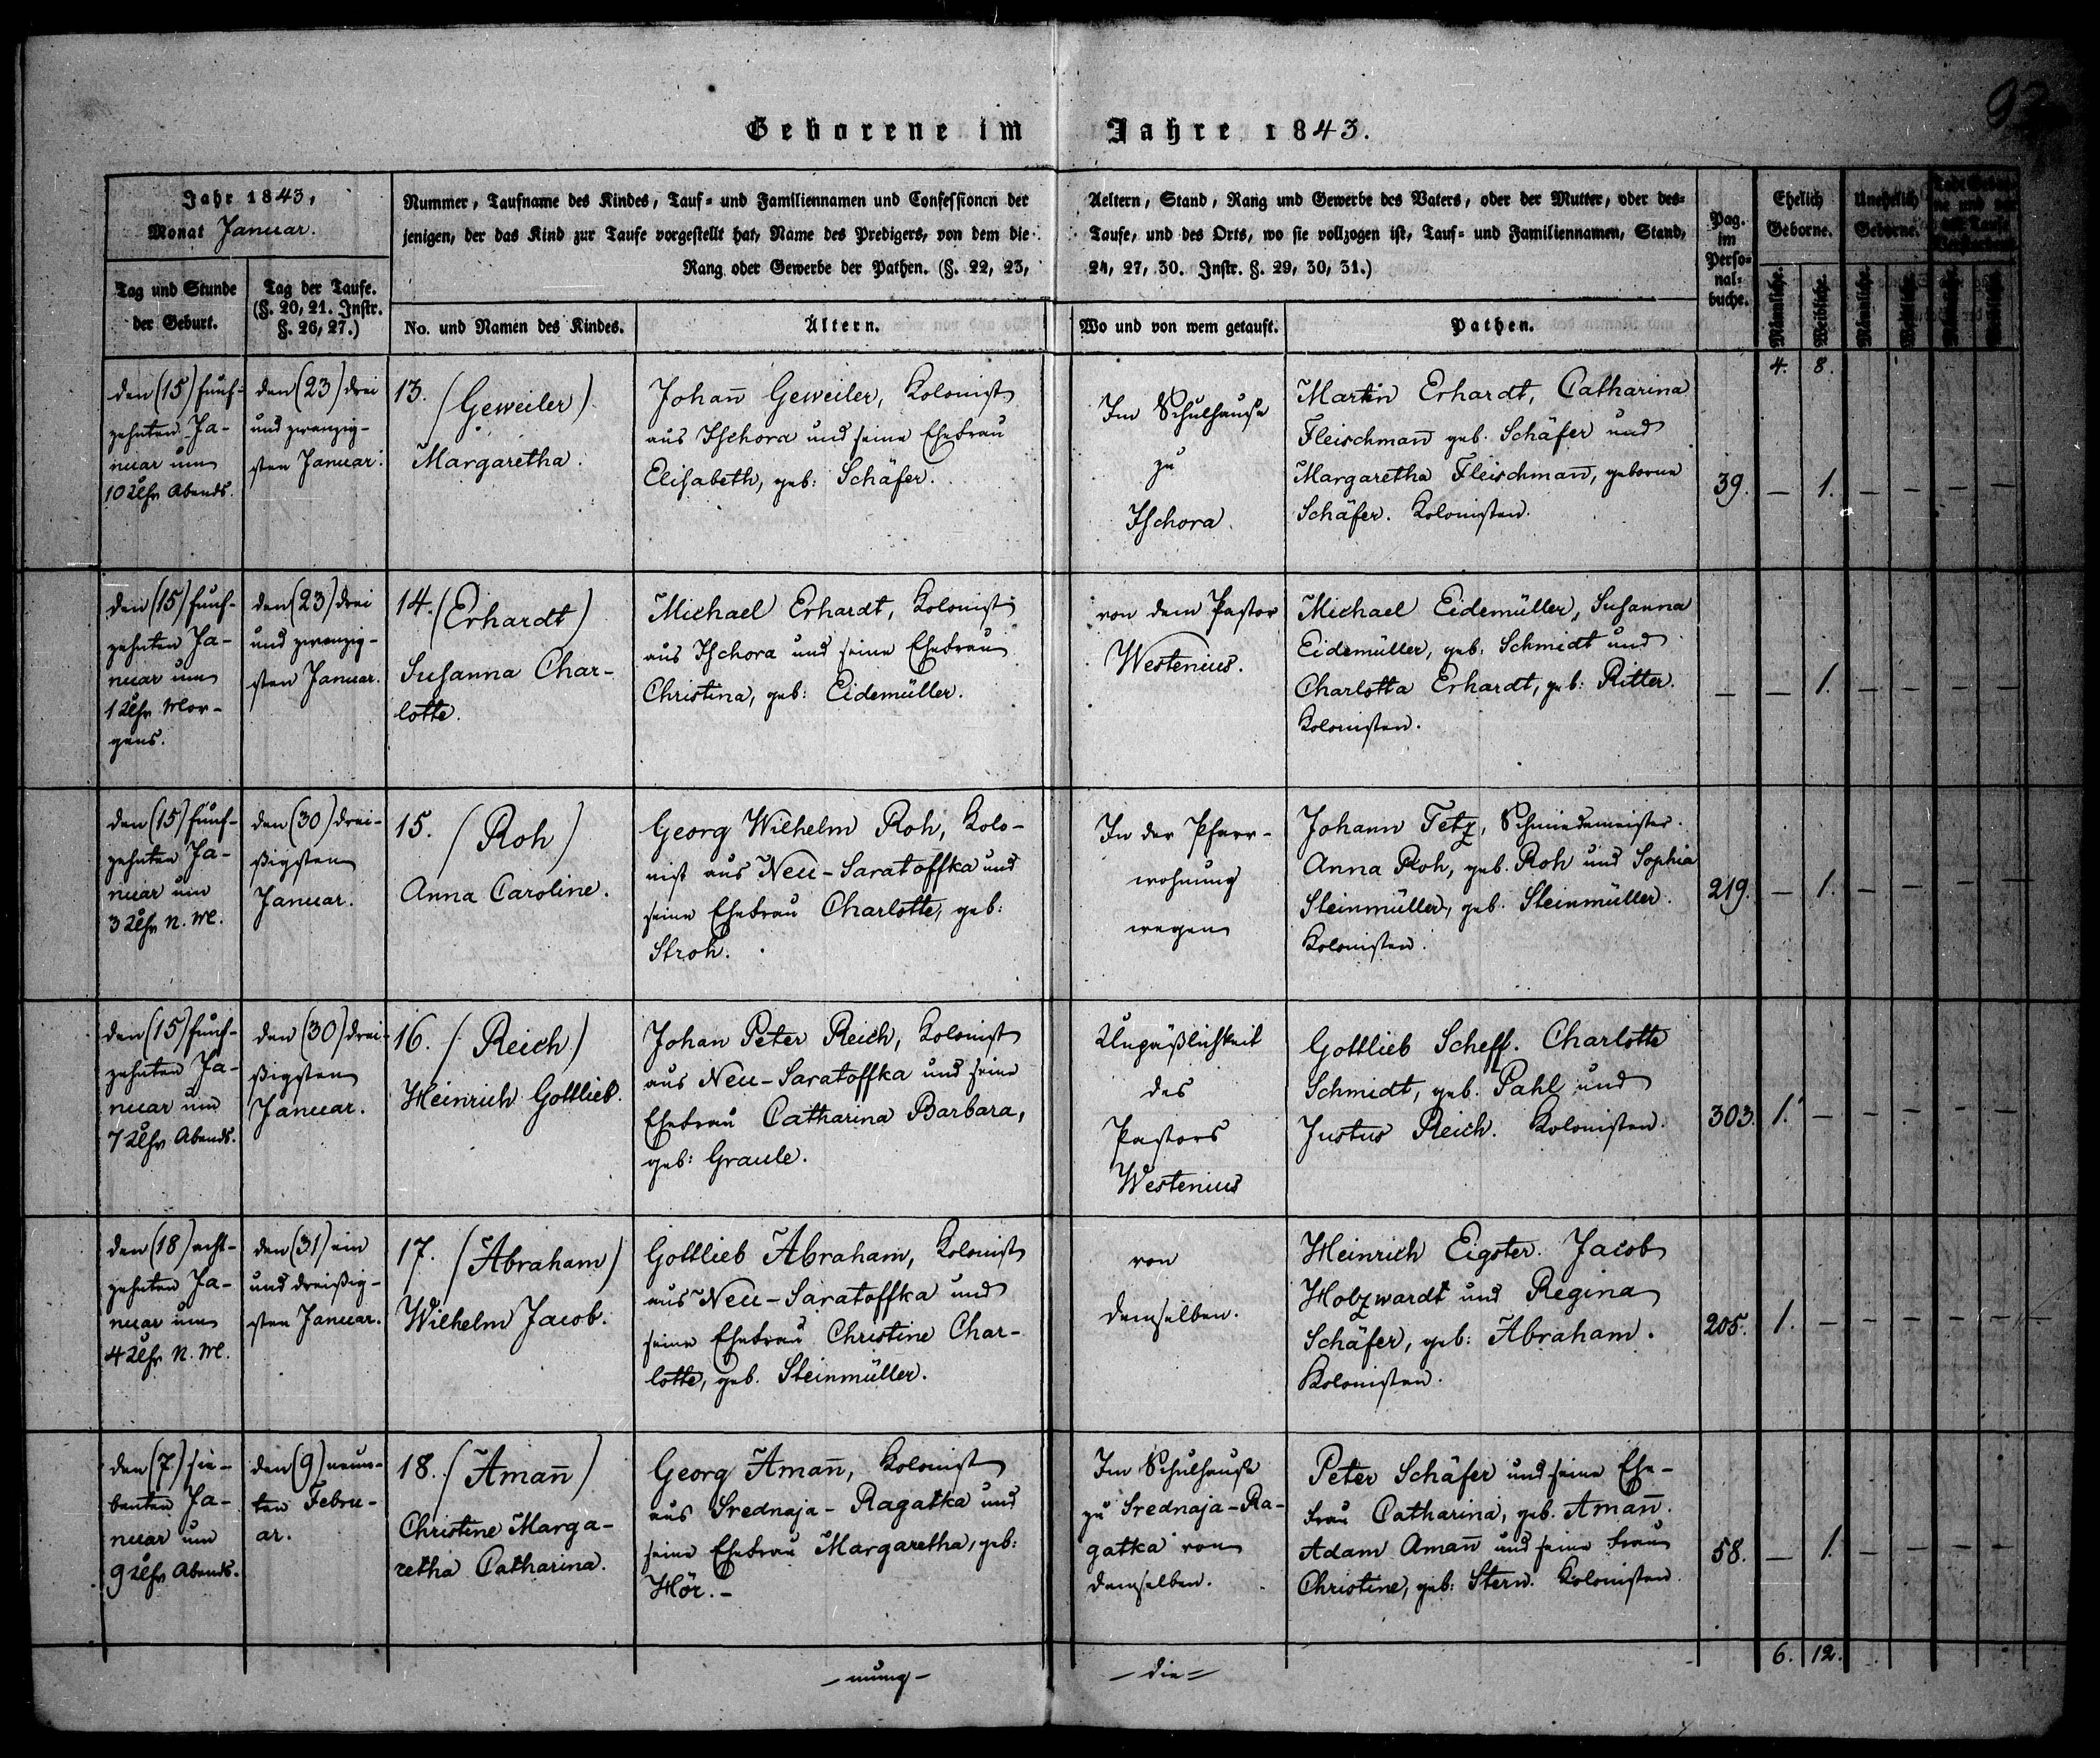 92
Geborene im Jahre 1843.
Jahr 1843,
Monat Januar.
Tag und Stunde
der Geburt.
Tag der Taufe.
(§. 20, 21. Instr.
§. 26, 27.)
Nummer, Taufname des Kindes, Tauf- und Familiennamen und Confessionen der
jenigen, der das Kind zur Taufe vorgestellt hat, Name des Predigers, von dem die
Rang oder Gewerbe der Pathen. (§. 22, 23,
No. und Namen des Kindes.
Ältern.
Aeltern, Stand, Rang und Gewerbe des Vaters, oder der Mutter, oder des-
Taufe, und des Orts, wo sie vollzogen ist, Tauf- und Familiennamen, Stand,
24, 27, 30. Instr. §. 29, 30, 31.)
Wo und von wem getauft.
Pathen.
Pag.
im
Perso-
nal-
buche.
Ehelich
Geborne.
Unehelich
Geborne.
Männliche.
Weibliche.
Männliche.
Weibliche.
4. 8.
den (15) funf-
zehnten Ja-
nuar um
10 Uhr Abends.
den (23) drei
und zwanzig-
sten Januar.
13. (Geweiler)
Margaretha.
Johan̄ Geweiler, Kolonist
aus Ischora und seine Ehefrau
Elisabeth, geb: Schäfer.
Im Schulhause
zu
Ischora.
Martin Erhardt, Catharina
Fleischman̄ geb. Schäfer und
Margaretha Fleischman̄, geborne
Schäfer. Kolonisten.
39. — 1. — — — —
den (15) funf-
zehnten Ja-
nuar um
1 Uhr Mor-
gens.
den (23) drei
und zwanzig-
sten Januar.
14. (Erhardt)
Susanna Char-
lotte.
Michael Erhardt, Kolonist
aus Ischora und seine Ehefrau
Christina, geb: Eidemüller.
von dem Pastor
Westenius.
Michael Eidemüller, Susanna
Eidemüller, geb: Schmidt und
Charlotta Erhardt, geb: Ritter.
Kolonisten.
— — 1. — — — —
den (15) funf-
zehnten Ja-
nuar um
3 Uhr N. M.
den (30) drei-
ßigsten
Januar.
15. (Roh)
Anna Caroline.
Georg Wilhelm Roh, Kolo-
nist aus Neu-Saratoffka und
seine Ehefrau Charlotte, geb:
Stroh.
In der Pfarr-
wohnung
wegen
Johann Tetz, Schmiedemeister.
Anna Roh, geb. Roh und Sophia
Steinmüller, geb. Steinmüller.
Kolonisten.
219. — 1. — — — —
den (15) funf-
zehnten Ja-
nuar um
7 Uhr Abends.
den (30) drei-
ßigsten
Januar.
16. (Reich)
Heinrich Gottlieb.
Johan Peter Reich, Kolonist
aus Neu-Saratoffka und seine
Ehefrau Catharina Barbara,
geb: Graule.
Unpäßlichkeit
des
Pastors
Westenius
Gottlieb Scheff. Charlotte
Schmidt, geb. Pahl und
Justus Reich. Kolonisten.
303. 1. — — — — —
den (18) acht-
zehnten Ja-
nuar um
4 Uhr N. M.
den (31) ein
und dreißig-
sten Januar.
17. (Abraham)
Wilhelm Jacob.
Gottlieb Abraham, Kolonist
aus Neu-Saratoffka und
seine Ehefrau Christine Char-
lotte, geb. Steinmüller.
von
demselben.
Heinrich Eigster. Jacob
Holzwardt und Regina
Schäfer, geb: Abraham.
Kolonisten.
205. 1. — — — — —
den (7) sie-
benten Ja-
nuar um
9 Uhr Abends.
den (9) neun-
ten Febru-
ar.
18. (Aman̄)
Christine Marga-
retha Catharina.
Georg Aman̄, Kolonist
aus Srednaja-Ragatka und
seine Ehefrau Margaretha, geb:
Hör.—
Im Schulhause
zu Srednaja-Ra-
gatka von
demselben.
Peter Schäfer und seine Ehe-
frau Catharina, geb. Aman̄.
Adam Aman̄ und seine Frau
Christine, geb: Stern. Kolonisten.
58. — 1. — — — —
6. 12.
— die=